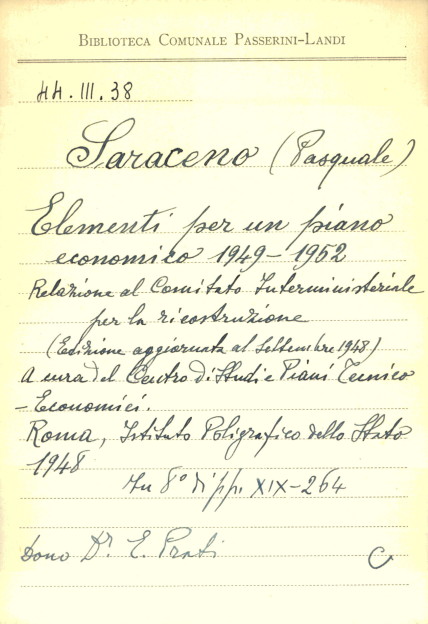 BIBLIOTECA COMUNALE PASSERINI-LANDI
44.III.38
Saraceno (Pasquale)
Elementi per un piano
economico 1949-1952
Relazione al Comitato Interministeriale
per la ricostruzione
(Edizione aggiornata al Settembre 1948)
A cura del Centro di Studi e Piani Tecnico
-Economici.
Roma, Istituto Poligrafico dello Stato
1948
In 8° di pp. XIX-264
Dono Dr E. Prati
C